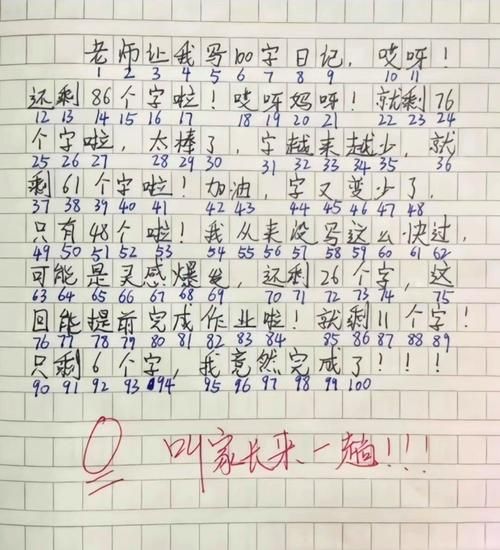 老师让我写100字日记，哎呀！
1 2 3 4 5 6 7 8 9 10 11
还剩86个字啦！哎呀妈呀！就剩76
12 13 14 15 16 17 18 19 20 21 22 23 24
个字啦，太棒了，字越来越少，就
25 26 27 28 29 30 31 32 33 34 35 36
剩61个字啦！加油，字又变少了，
37 38 39 40 41 42 43 44 45 46 47 48
只有48个啦！我从来没写这么快过，
49 50 51 52 53 54 55 56 57 58 59 60 61 62
可能是灵感爆发，还剩26个字，这
63 64 65 66 67 68 69 70 71 72 73 74 75
回能提前完成作业啦！就剩11个字！
76 77 78 79 80 81 82 83 84 85 86 87 88 89
只剩6个字，我竟然完成了！！！
90 91 92 93 94 95 96 97 98 99 100
0 叫家长来一趟!!!